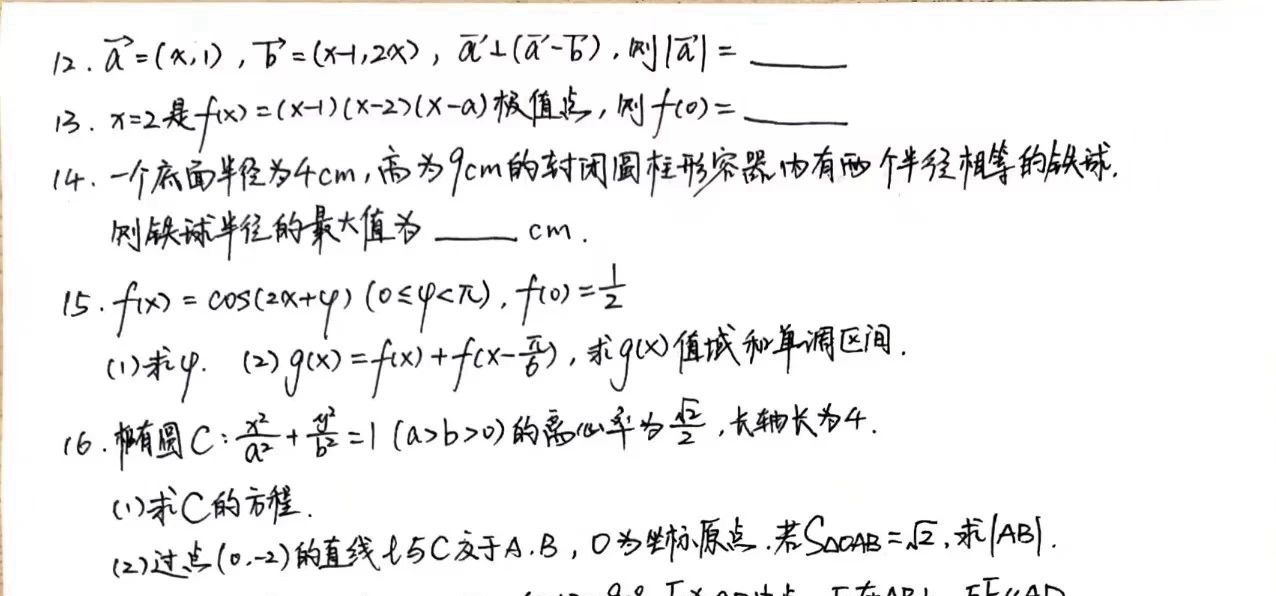 12. a⃗=(x,1), b⃗=(x-1,2x), a⃗⊥(a⃗-b⃗), 则|a⃗|= ____
13. x=2是f(x)=(x-1)(x-2)(x-a)极值点,则f(0)= ____
14. 一个底面半径为4cm,高为9cm的封闭圆柱形容器内有两个半径相等的铁球.
则铁球半径的最大值为 ____ cm.
15. f(x)=cos(2x+φ) (0≤φ<π), f(0)=1/2
(1)求φ. (2)g(x)=f(x)+f(x-π/6), 求g(x)值域和单调区间.
16. 椭圆C: x²/a²+y²/b²=1 (a>b>0)的离心率为√2/2, 长轴长为4.
(1)求C的方程.
(2)过点(0,-2)的直线l与C交于A.B, O为坐标原点.若S△OAB=√2,求|AB|.